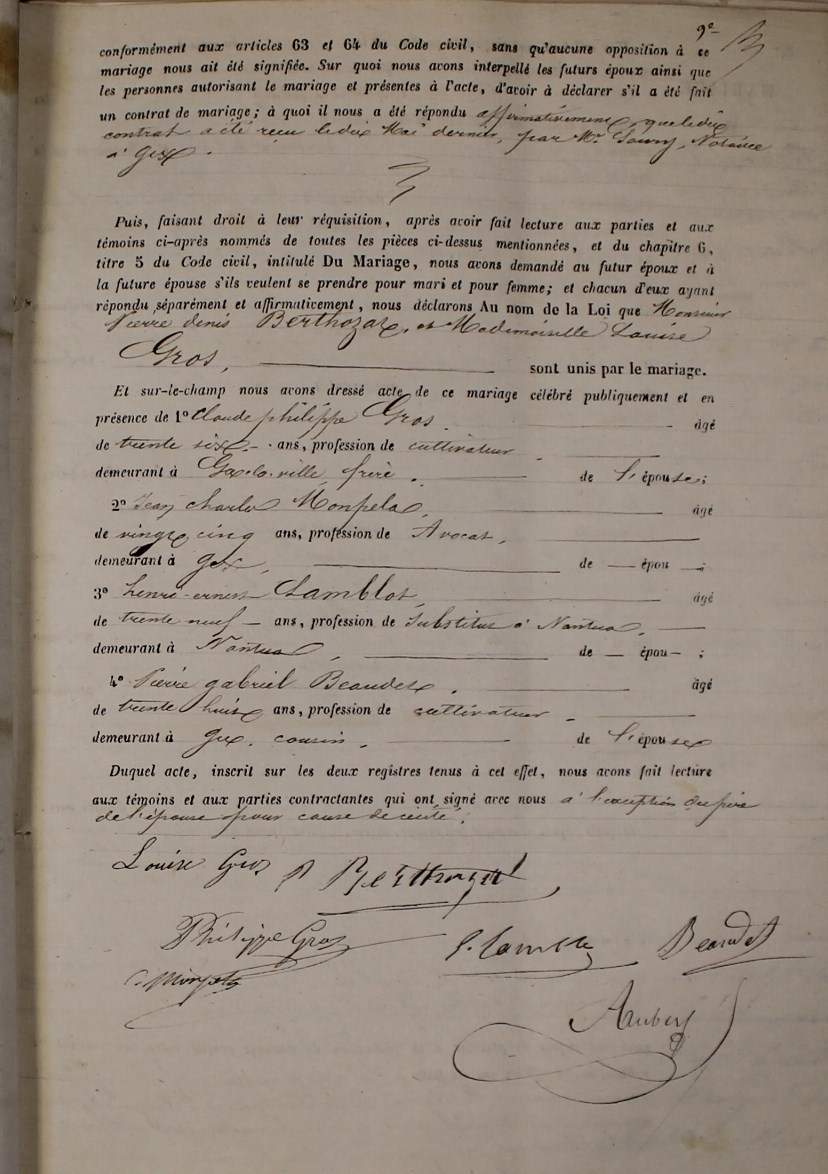 9e
conformément aux articles 63 et 64 du Code civil, sans qu'aucune opposition à ce
mariage nous ait été signifiée. Sur quoi nous avons interpellé les futurs époux ainsi que
les personnes autorisant le mariage et présentes à l'acte, d'avoir à déclarer s'il a été fait
un contrat de mariage; à quoi il nous a été répondu affirmativement, que ledit
contrat a été reçu le dix Mai dernier, par Me Notaire
à Gex.
Puis, faisant droit à leur réquisition, après avoir fait lecture aux parties et aux
témoins ci-après nommés de toutes les pièces ci-dessus mentionnées, et du chapitre 6,
titre 5 du Code civil, intitulé Du Mariage, nous avons demandé au futur époux et à
la future épouse s'ils veulent se prendre pour mari et pour femme; et chacun d'eux ayant
répondu séparément et affirmativement, nous déclarons Au nom de la Loi que Monsieur
Pierre denis Berthozat, et Mademoiselle Louise
Gros, sont unis par le mariage.
Et sur-le-champ nous avons dressé acte de ce mariage célébré publiquement et en
présence de 1o Claude philippe Gros. âgé
de trente six ans, profession de cultivateur
demeurant à Gex-la-ville, frère de l'épouse;
2o Jean charles âgé
de vingt cinq ans, profession de Avocat,
demeurant à gex, de — épou —;
3o henri-ernest Lamblot, âgé
de trente neuf — ans, profession de Substitut à Nantua,
demeurant à Nantua, de — épou — ;
4o Pierre gabriel Beaudet. âgé
de trente huit ans, profession de cultivateur
demeurant à gex, cousin, de l'épouse
Duquel acte, inscrit sur les deux registres tenus à cet effet, nous avons fait lecture
aux témoins et aux parties contractantes qui ont signé avec nous à l'exception du père
de l'épouse pour cause de cécité.
Louise Gros P Berthozat
Philippe Gros Beaudet